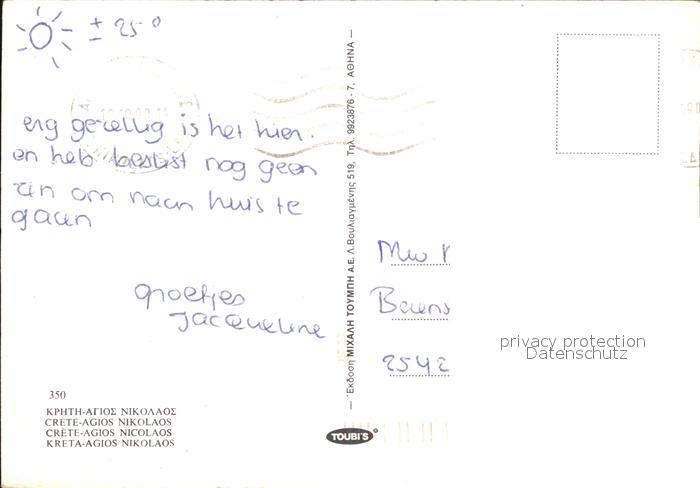 ± 25°
erg gezellig is het hier.
en heb beslist nog geen
zin om naar huis te
gaan
groetjes
Jacqueline
350
ΚΡΗΤΗ-ΑΓΙΟΣ ΝΙΚΟΛΑΟΣ
CRETE-AGIOS NIKOLAOS
CRÈTE-AGIOS NICOLAOS
KRETA-AGIOS NIKOLAOS
Έκδοση ΜΙΧΑΛΗ ΤΟΥΜΠΗ Α.Ε. Λ.Βουλιαγμένης 519, Τηλ. 9923876 - 7, ΑΘΗΝΑ
TOUBI'S
2542
privacy protection
Datenschutz